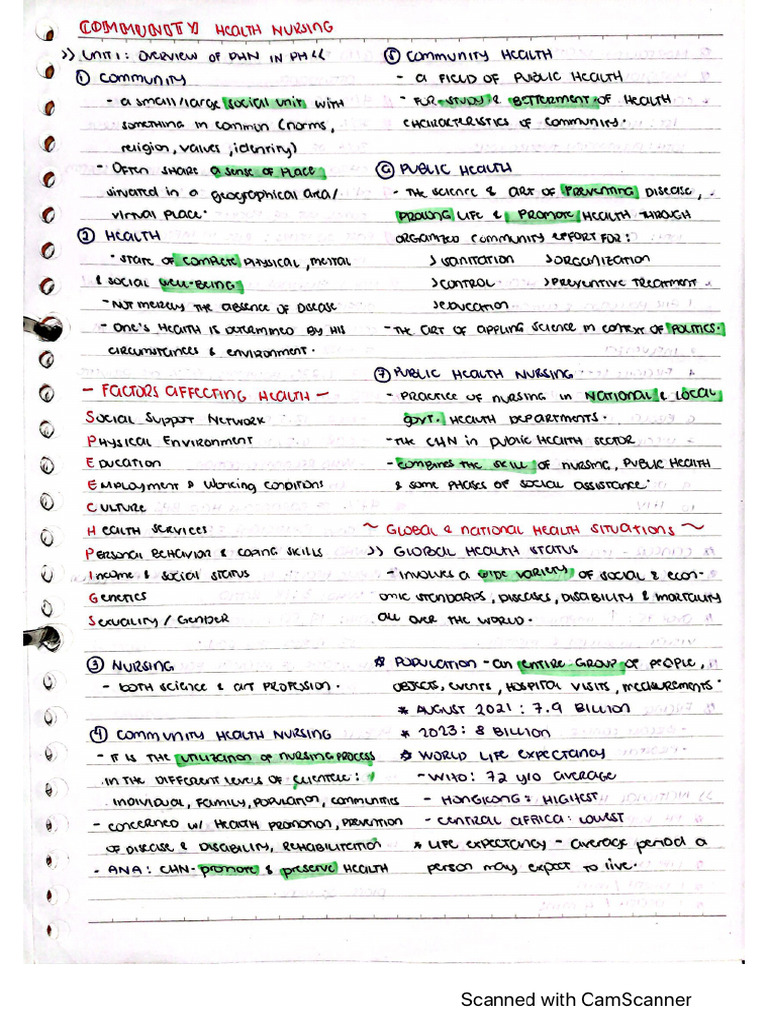 COMMUNITY HEALTH NURSING
>> UNIT 1: OVERVIEW OF PHN IN PH <<
① COMMUNITY
- a small/large social unit with
something in common (norms,
religion, values, identity)
- Often share a sense of place
situated in a geographical area/
virtual place.
② HEALTH
- State of complete physical, mental
& social well-being
- Not merely the absence of disease
- One's health is determined by his
circumstances & environment.
- FACTORS AFFECTING HEALTH -
Social Support Network
Physical Environment
Education
Employment & Working conditions
Culture
Health Services
Personal Behavior & coping skills
Income & social status
Genetics
Sexuality / Gender
③ NURSING
- both science & art profession.
④ COMMUNITY HEALTH NURSING
- It is the utilization of nursing process
in the different levels of clientele:
individual, family, population, communities
- concerned w/ health promotion, prevention
of disease & disability, rehabilitation
- ANA: CHN- promote & preserve health
⑤ COMMUNITY HEALTH
- a field of public health
- For study & betterment of health
characteristics of community.
⑥ PUBLIC HEALTH
- The science & art of preventing disease,
prolong life & promote health through
organized community effort for:
> sanitation > organization
> control > preventive treatment
> education
- The art of appling science in context of politics.
⑦ PUBLIC HEALTH NURSING
- practice of nursing in national & local
govt. health departments.
- The CHN in public health sector
- combines the skill of nursing, public health
& some phases of social assistance.
~ GLOBAL & NATIONAL HEALTH SITUATIONS ~
>> GLOBAL HEALTH STATUS
- involves a wide variety of social & econ-
omic standards, diseases, disability & mortality
all over the world.
* Population - an entire group of people,
objects, events, hospital visits, measurements.
* August 2021: 7.9 Billion
* 2023: 8 Billion
* World life expectancy
- WHO: 72 y/o average
- Hongkong: Highest
- Central Africa: Lowest
* Life expectancy - average period a
person may expect to live.
Scanned with CamScanner